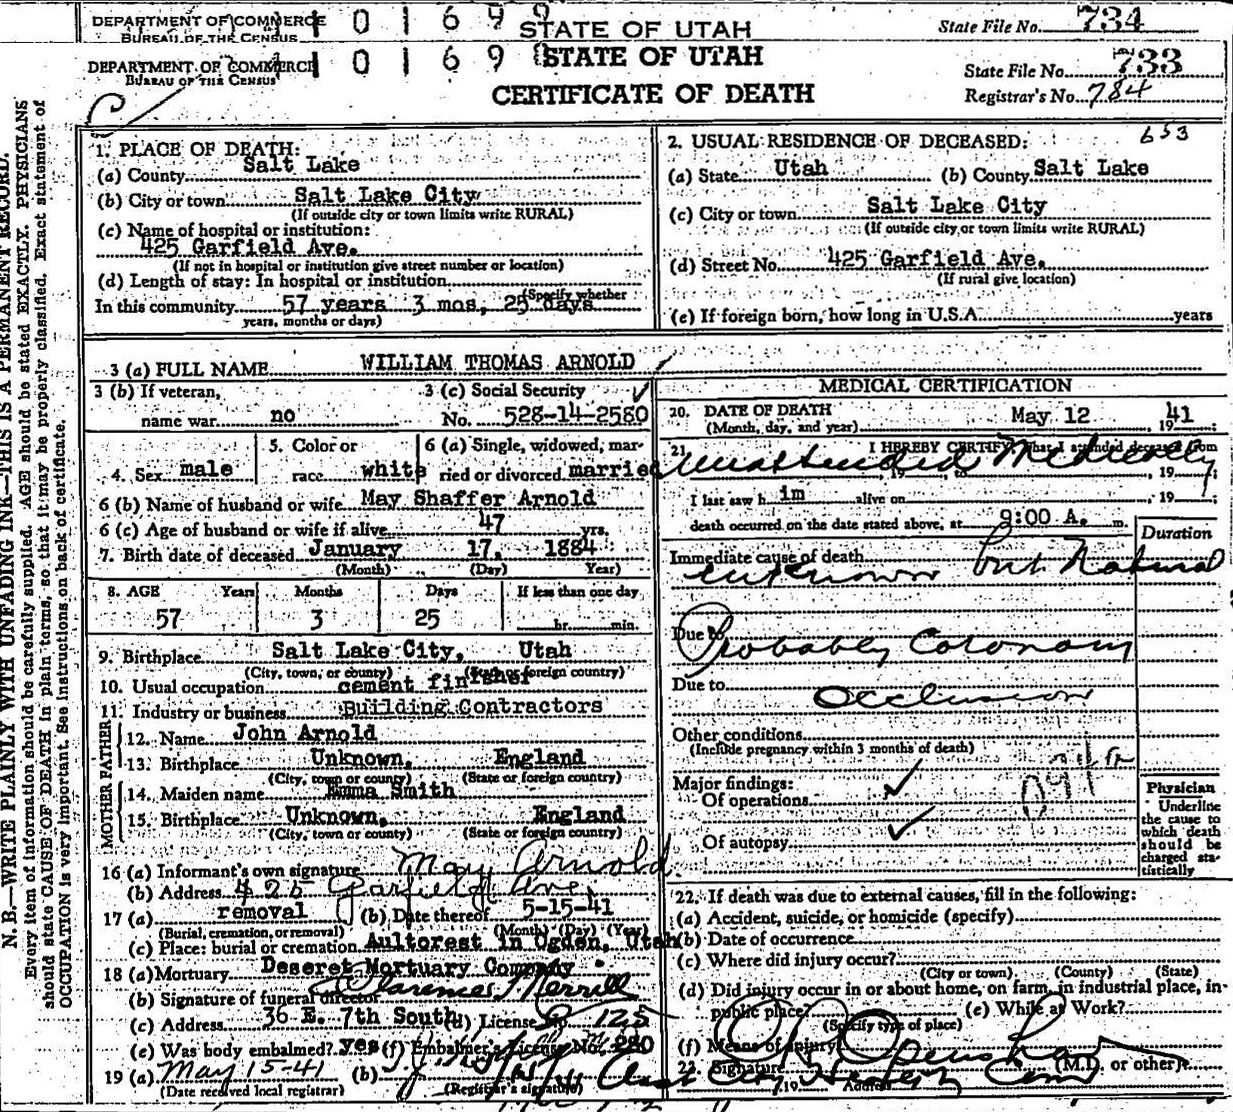 DEPARTMENT OF COMMERCE
BUREAU OF THE CENSUS
1 0 1 6 9 9
STATE OF UTAH
State File No. 734
DEPARTMENT OF COMMERCE
BUREAU OF THE CENSUS
1 0 1 6 9 8
STATE OF UTAH
State File No. 733
CERTIFICATE OF DEATH
Registrar's No. 784
653
N. B.—WRITE PLAINLY WITH UNFADING INK—THIS IS A PERMANENT RECORD.
Every item of information should be carefully supplied. AGE should be stated EXACTLY. PHYSICIANS
should state CAUSE OF DEATH in plain terms, so that it may be properly classified. Exact statement of
OCCUPATION is very important. See instructions on back of certificate.
1. PLACE OF DEATH:
(a) County Salt Lake
(b) City or town Salt Lake City
(If outside city or town limits write RURAL)
(c) Name of hospital or institution:
425 Garfield Ave.
(If not in hospital or institution give street number or location)
(d) Length of stay: In hospital or institution
(Specify whether
In this community 57 years 3 mos. 25 days
years, months or days)
2. USUAL RESIDENCE OF DECEASED:
(a) State Utah (b) County Salt Lake
(c) City or town Salt Lake City
(If outside city or town limits write RURAL)
(d) Street No. 425 Garfield Ave.
(If rural give location)
(e) If foreign born, how long in U.S.A. years
3 (a) FULL NAME WILLIAM THOMAS ARNOLD
3 (b) If veteran,
name war no
3 (c) Social Security
No. 528-14-2580
4. Sex male
5. Color or
race white
6 (a) Single, widowed, mar-
ried or divorced married
6 (b) Name of husband or wife May Shaffer Arnold
6 (c) Age of husband or wife if alive 47 yrs.
7. Birth date of deceased January 17, 1884
(Month) (Day) Year)
8. AGE Years Months Days If less than one day
57 3 25 hr. min.
9. Birthplace Salt Lake City, Utah
(City, town, or county) (State or foreign country)
10. Usual occupation cement finisher
11. Industry or business Building Contractors
FATHER
12. Name John Arnold
13. Birthplace Unknown, England
(City, town or county) (State or foreign country)
MOTHER
14. Maiden name Emma Smith
15. Birthplace Unknown, England
(City, town or county) (State or foreign country)
16 (a) Informant's own signature May Arnold
(b) Address 425 Garfield Ave.
17 (a) removal (b) Date thereof 5-15-41
(Burial, cremation, or removal) (Month) (Day) (Year)
(c) Place: burial or cremation Aultorest in Ogden, Utah
18 (a) Mortuary Deseret Mortuary Company
(b) Signature of funeral director Clarence Merrill
(c) Address 36 E. 7th South (d) License No. 125
(e) Was body embalmed? yes (f) Embalmer's License No. 280
19 (a) May 15-41 (b)
(Date received local registrar) (Registrar's signature)
MEDICAL CERTIFICATION
20. DATE OF DEATH
(Month, day, and year) May 12, 1941
21. I HEREBY CERTIFY That I attended deceased from
Unattended Medically
19 , to 19
I last saw him alive on , 19 ;
death occurred on the date stated above, at 9:00 A. m.
Duration
Immediate cause of death
unknown but Natural
Due to Probably Coronary
Due to Occlusion
Other conditions
(Include pregnancy within 3 months of death)
Major findings:
Of operations ✓
Of autopsy ✓
Physician
Underline
the cause to
which death
should be
charged sta-
tistically
22. If death was due to external causes, fill in the following:
(a) Accident, suicide, or homicide (specify)
(b) Date of occurrence
(c) Where did injury occur?
(City or town) (County) (State)
(d) Did injury occur in or about home, on farm, in industrial place, in-
public place? (e) While at Work?
(Specify type of place)
(f) Means of injury
23. Signature (M.D. or other)
19 Address